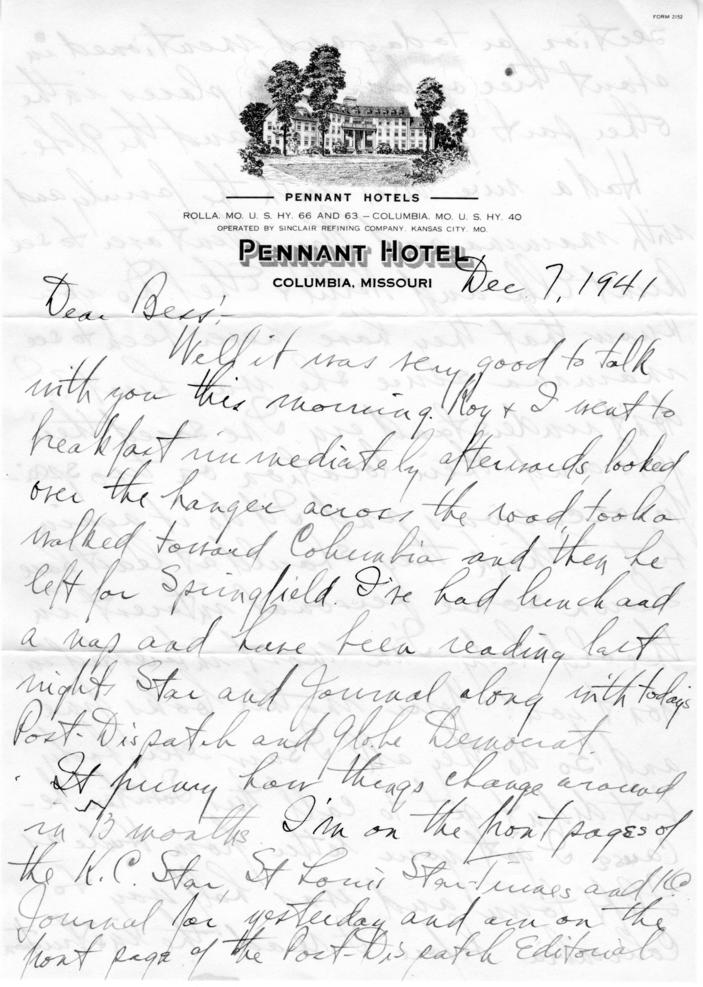 FORM 2152
PENNANT HOTELS
ROLLA, MO. U. S. HY. 66 AND 63 – COLUMBIA, MO. U. S. HY. 40
OPERATED BY SINCLAIR REFINING COMPANY, KANSAS CITY, MO.
PENNANT HOTEL
COLUMBIA, MISSOURI
Dec. 7, 1941
Dear Bess:-
Well it was very good to talk
with you this morning. Roy & I went to
breakfast immediately afterwards, looked
over the hanger across the road, took a
walked toward Columbia and then he
left for Springfield. I've had lunch and
a nap and have been reading last
nights Star and Journal along with todays
Post-Dispatch and Globe Democrat.
It funny how things change around
in 13 months. I'm on the front pages of
the K.C. Star, St Louis Star-Times and K.C.
Journal for yesterday and am on the
front page of the Post-Dispatch Editorial